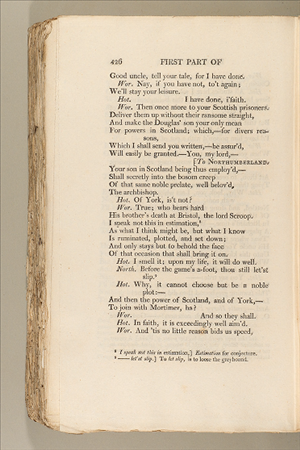 426 FIRST PART OF
Good uncle, tell your tale, for I have done.
Wor. Nay, if you have not, to't again;
We'll stay your leisure.
Hot. I have done, i'faith.
Wor. Then once more to your Scottish prisoners.
Deliver them up without their ransome straight,
And make the Douglas' son your only mean
For powers in Scotland; which,—for divers rea-
sons,
Which I shall send you written,—be assur'd,
Will easily be granted.—You, my lord,—
[To NORTHUMBERLAND.
Your son in Scotland being thus employ'd,—
Shall secretly into the bosom creep
Of that same noble prelate, well belov'd,
The archbishop.
Hot. Of York, is't not?
Wor. True; who bears hard
His brother's death at Bristol, the lord Scroop.
I speak not this in estimation,⁸
As what I think might be, but what I know
Is ruminated, plotted, and set down;
And only stays but to behold the face
Of that occasion that shall bring it on.
Hot. I smell it; upon my life, it will do well.
North. Before the game's a-foot, thou still let'st
slip.⁹
Hot. Why, it cannot choose but be a noble
plot:—
And then the power of Scotland, and of York,—
To join with Mortimer, ha?
Wor. And so they shall.
Hot. In faith, it is exceedingly well aim'd.
Wor. And 'tis no little reason bids us speed,
⁸ I speak not this in estimation,] Estimation for conjecture.
⁹ —— let'st slip.] To let slip, is to loose the greyhound.